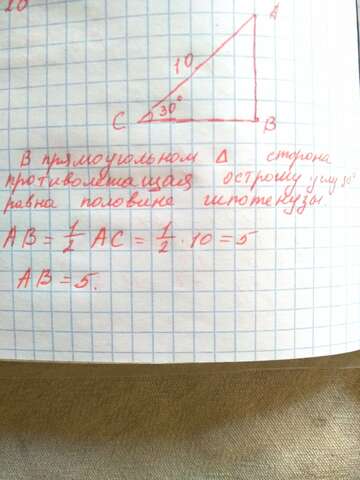 20
A
10
30°
C
B
В прямоугольном Δ сторона
противолежащая острому углу 30°
равна половине гипотенузы.
AB = 1/2 AC = 1/2 · 10 = 5
AB = 5.